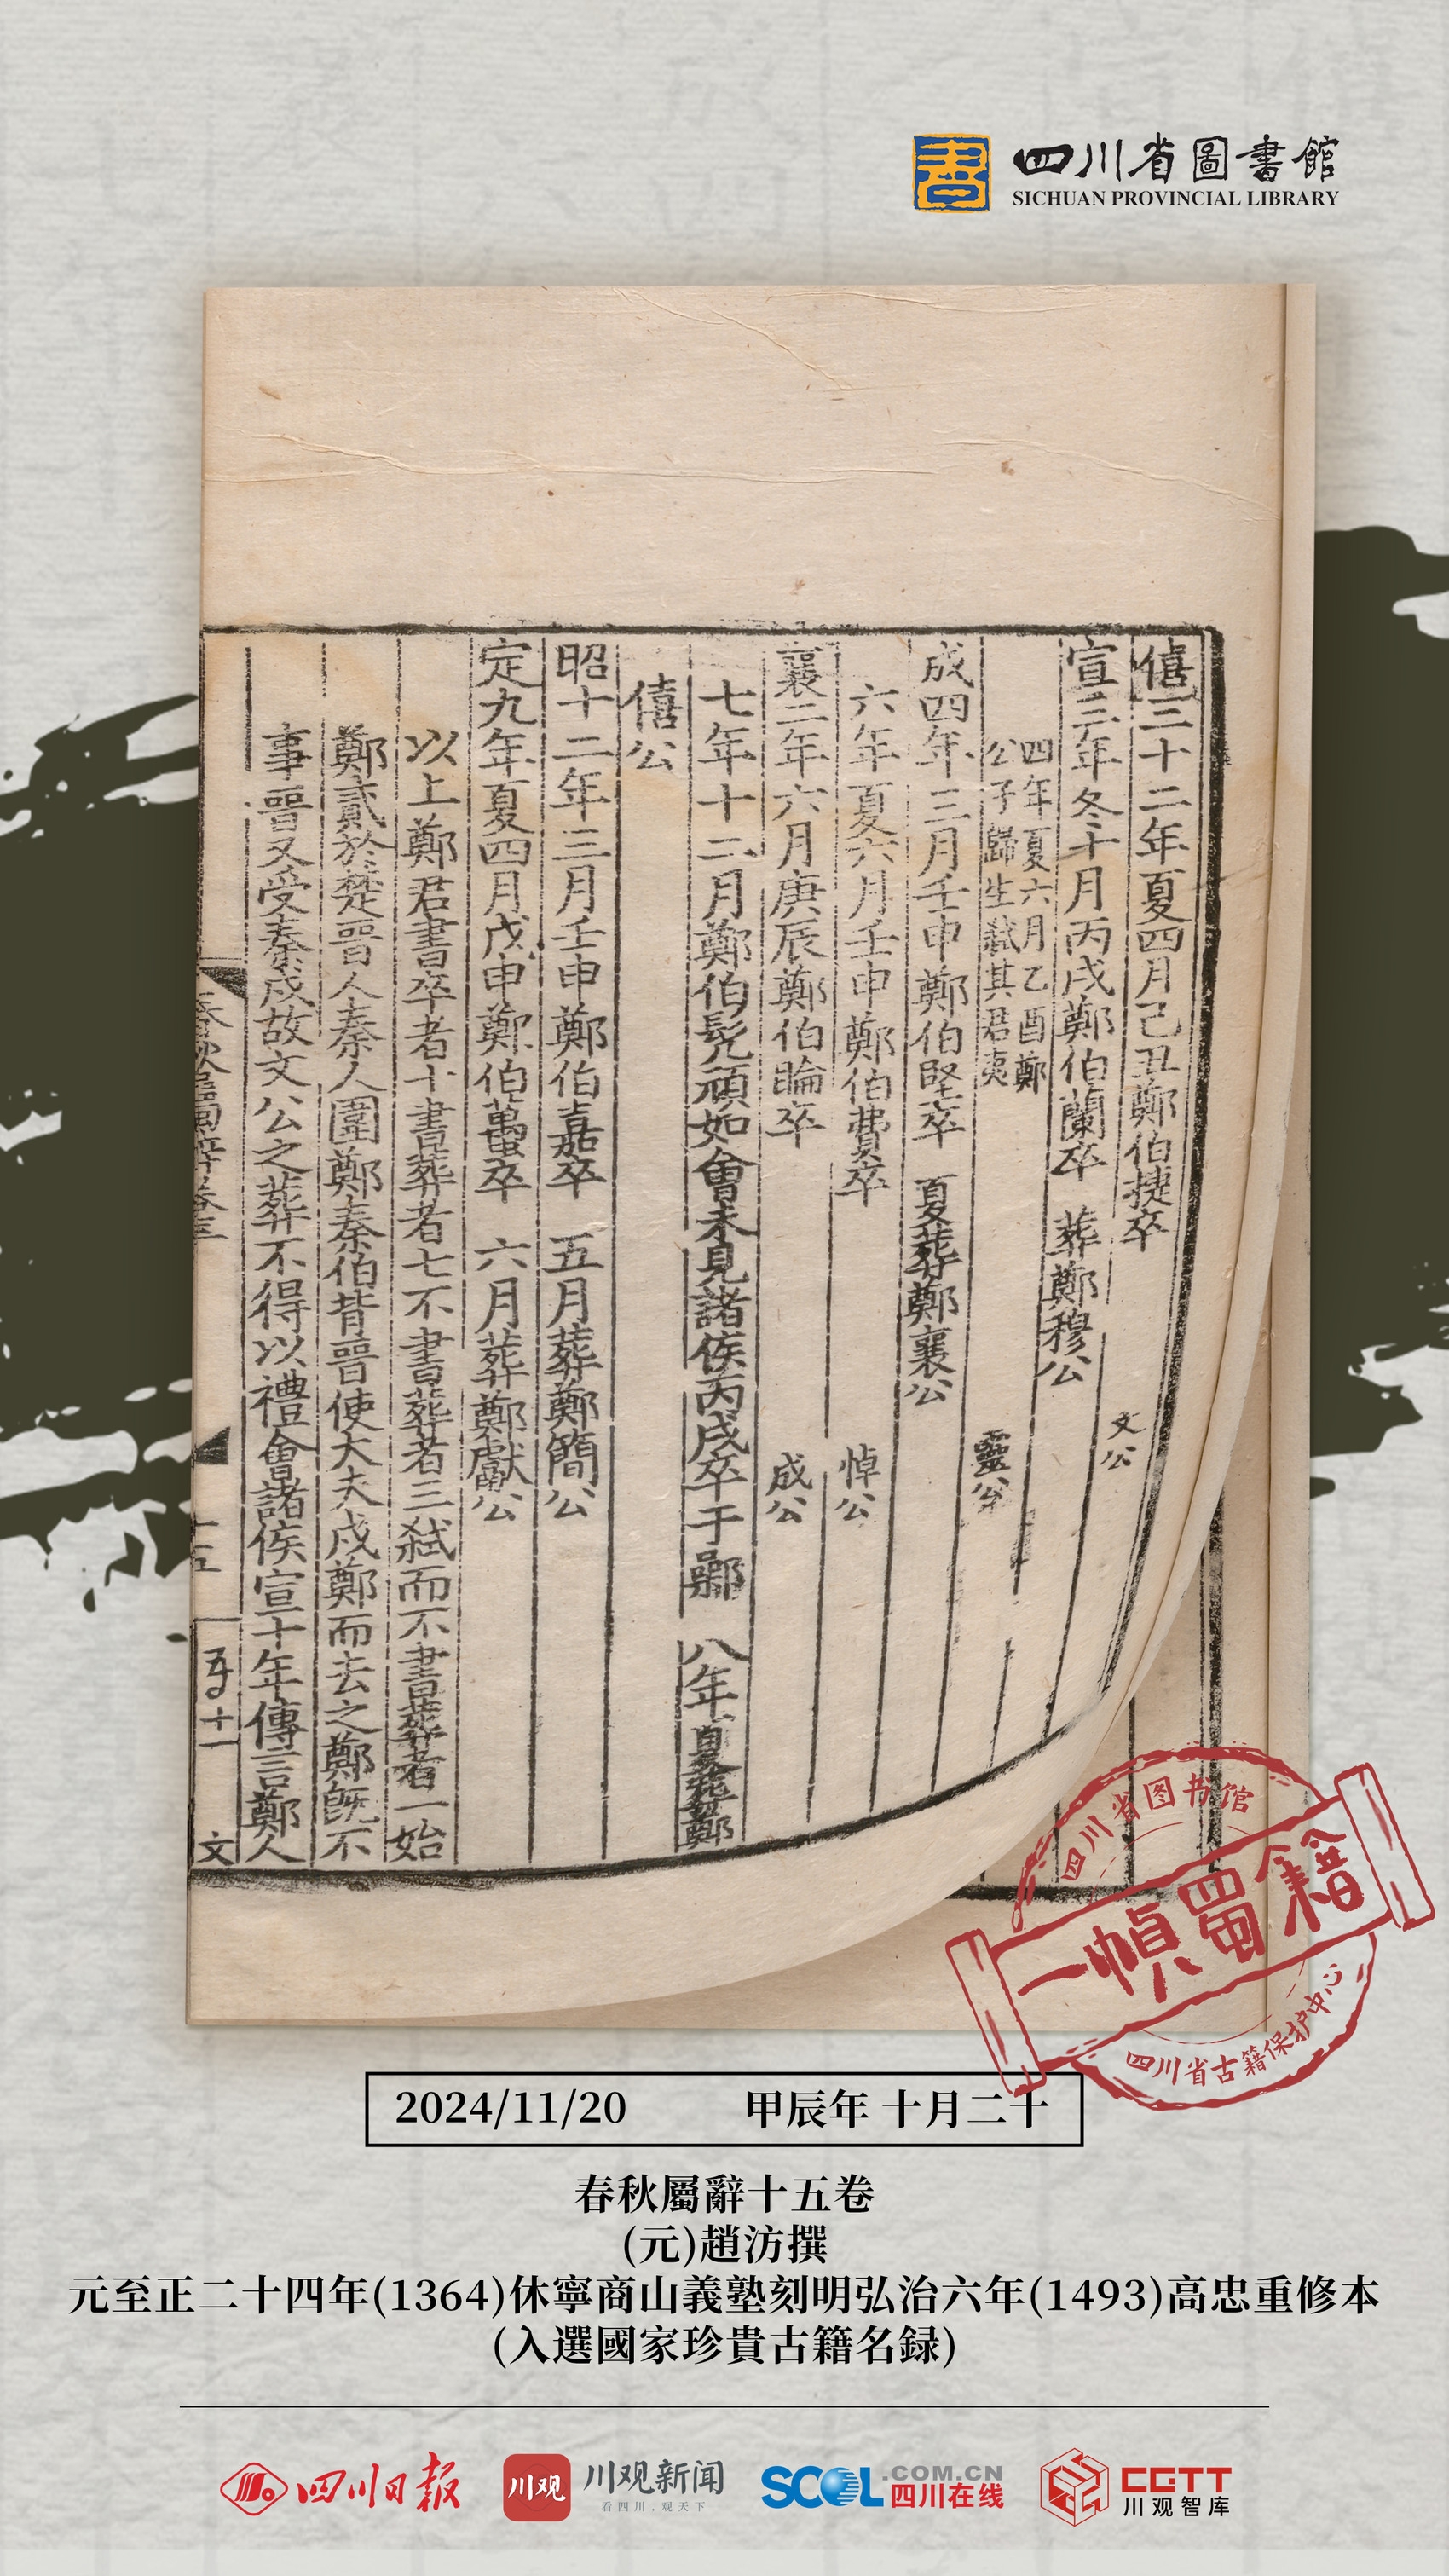 書
四川省圖書館
SICHUAN PROVINCIAL LIBRARY
僖三十二年夏四月己丑鄭伯捷卒 文公
宣三年冬十月丙戌鄭伯蘭卒 葬鄭穆公
四年夏六月乙酉鄭
公子歸生弑其君夷 靈公
成四年三月壬申鄭伯堅卒 夏葬鄭襄公
六年夏六月壬申鄭伯費卒 悼公
襄二年六月庚辰鄭伯睔卒 成公
七年十二月鄭伯髡頑如會未見諸侯丙戌卒于鄵 八年夏葬鄭
僖公
昭十二年三月壬申鄭伯嘉卒 五月葬鄭簡公
定九年夏四月戊申鄭伯蠆卒 六月葬鄭獻公
以上鄭君書卒者十書葬者七不書葬者三弑而不書葬者一始
鄭貳於楚晉人秦人圍鄭秦伯背晉使大夫戍鄭而去之鄭旣不
事晉又受秦戍故文公之葬不得以禮會諸侯宣十年傳言鄭人
春秋屬辭卷三
十五
十一
文
四川省图书馆
一幀蜀籍
四川省古籍保护中心
2024/11/20 甲辰年 十月二十
春秋屬辭十五卷
(元)趙汸撰
元至正二十四年(1364)休寧商山義塾刻明弘治六年(1493)高忠重修本
(入選國家珍貴古籍名録)
四川日报
川观
川观新闻
看四川，观天下
SCOL.COM.CN
四川在线
CGTT
川观智库